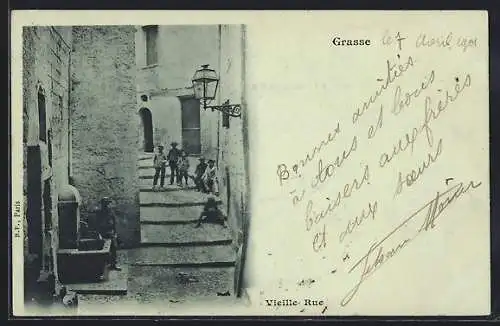 Grasse le 7 Avril 1901
Bonnes amitiés
à tous et bons
baisers aux frères
et aux sœurs
B.F., Paris
Vieille Rue